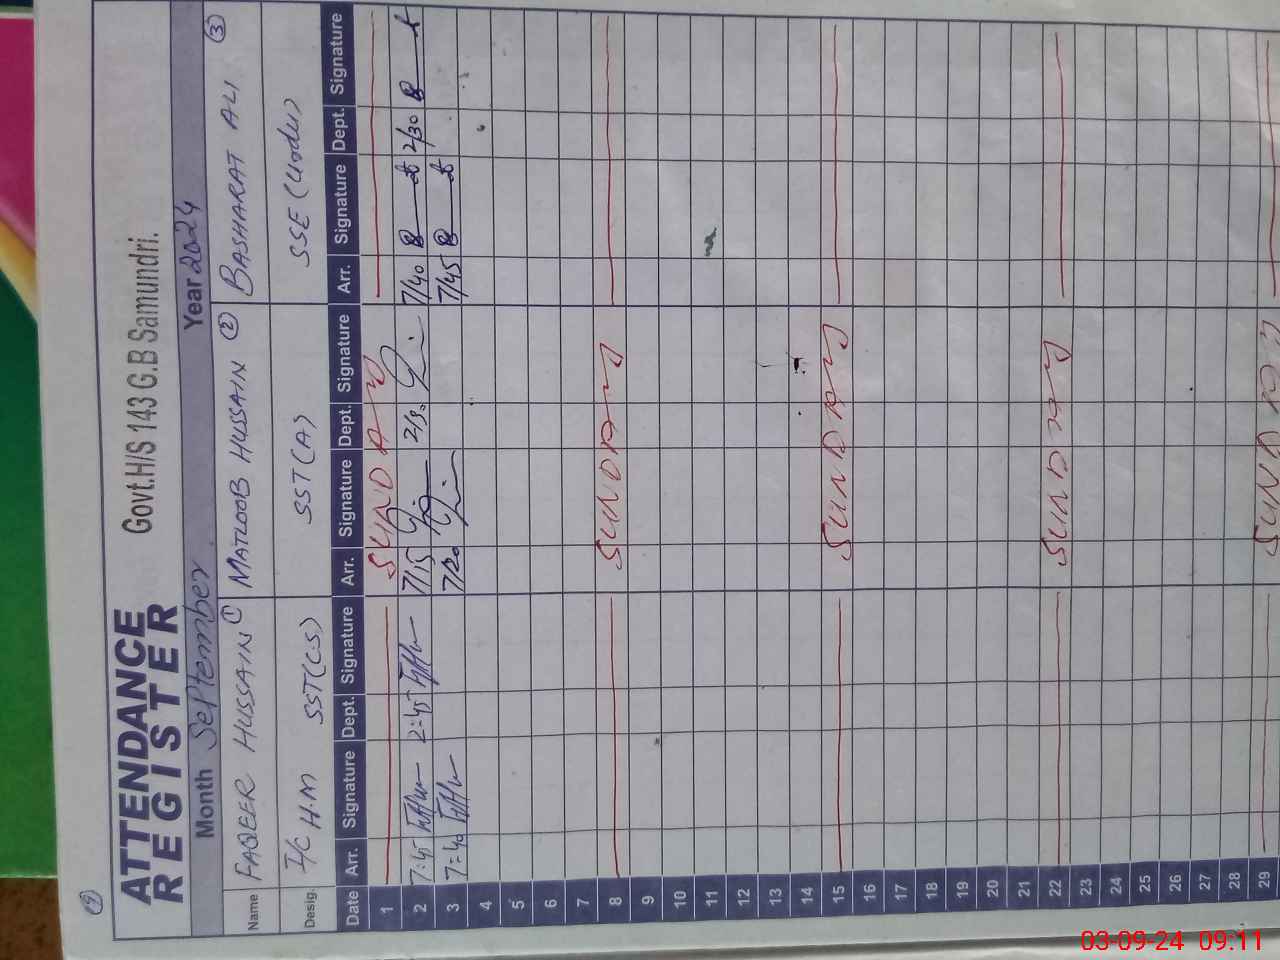 9
ATTENDANCE
REGISTER
Govt.H/S 143 G.B Samundri.
Month September Year 2024
Name FAQEER HUSSAIN 1 MATLOOB HUSSAIN 2 BASHARAT ALI 3
Desig. I/C H.M SST(CS) SST(A) SSE(Urdu)
Date Arr. Signature Dept. Signature Arr. Signature Dept. Signature Arr. Signature Dept. Signature
1 SUNDAY
2 7:45 2:45 7/15 2/30 7/40 2/30
3 7:40 7/20 7/45
4
5
6
7
8 SUNDAY
9
10
11
12
13
14
15 SUNDAY
16
17
18
19
20
21
22 SUNDAY
23
24
25
26
27
28
29 SUNDAY
03-09-24 09:11